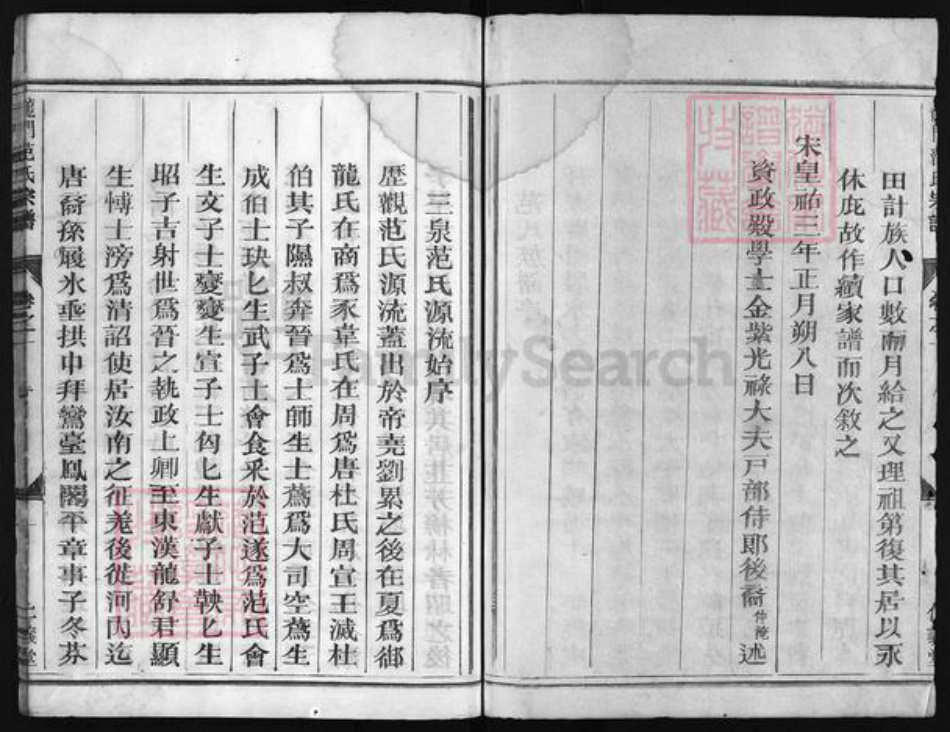 田計族人口數兩月給之又理祖第復其居以永
休庇故作續家譜而次敘之
宋皇祐三年正月朔八日
資政殿學士金紫光祿大夫戸部侍郎後裔仲淹述
三泉范氏源流始序
歷觀范氏源流蓋出於帝堯劉累之後在夏爲御
龍氏在商爲豕韋氏在周爲唐杜氏周宣王滅杜
伯其子隰叔奔晉爲士師生士蔿爲大司空蔿生
成伯士玦匕生武子士會食采於范遂爲范氏會
生文子士燮燮生宣子士匃匕生獻子士鞅匕生
昭子吉射世爲晉之執政上卿至東漢龍舒君顯
生愽士滂爲清詔使居汝南之征羗後從河內迄
唐裔孫履氷垂拱中拜鸞臺鳳閣平章事子冬芬
龍門范氏宗譜
卷之一
FamilySearch